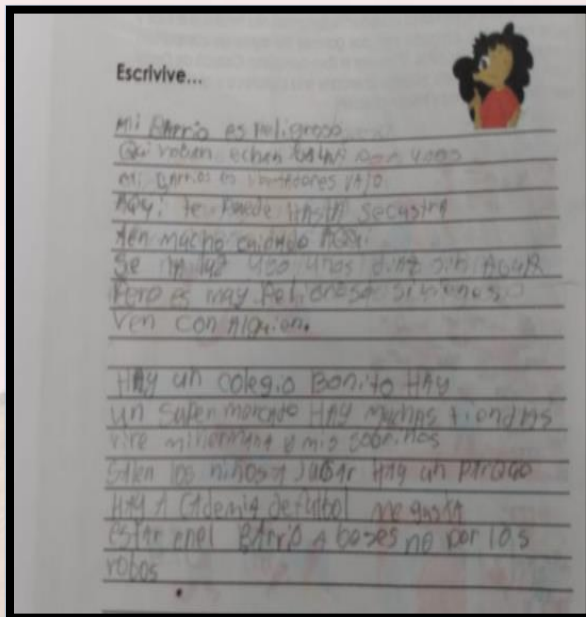 Escrivive...
Mi BArrio es peligroso
Qui roban echan
Mi BArrios es
AQUi te Puede HAStA SecustrA
ten mucho cuidado AQui
Se unos sin AguA
Pero es muy Peligroso si vienes
Ven con Alguien.
HAy un colegio Bonito HAy
un Supermercado HAy Muchas tiendas
vive mi hermana y mis sobrinos
SAlen los niños A JUgAr HAy un PArQue
HAy A CAdemiA de futbol me gustA
estAr enel BArrio A beses no por los
robos